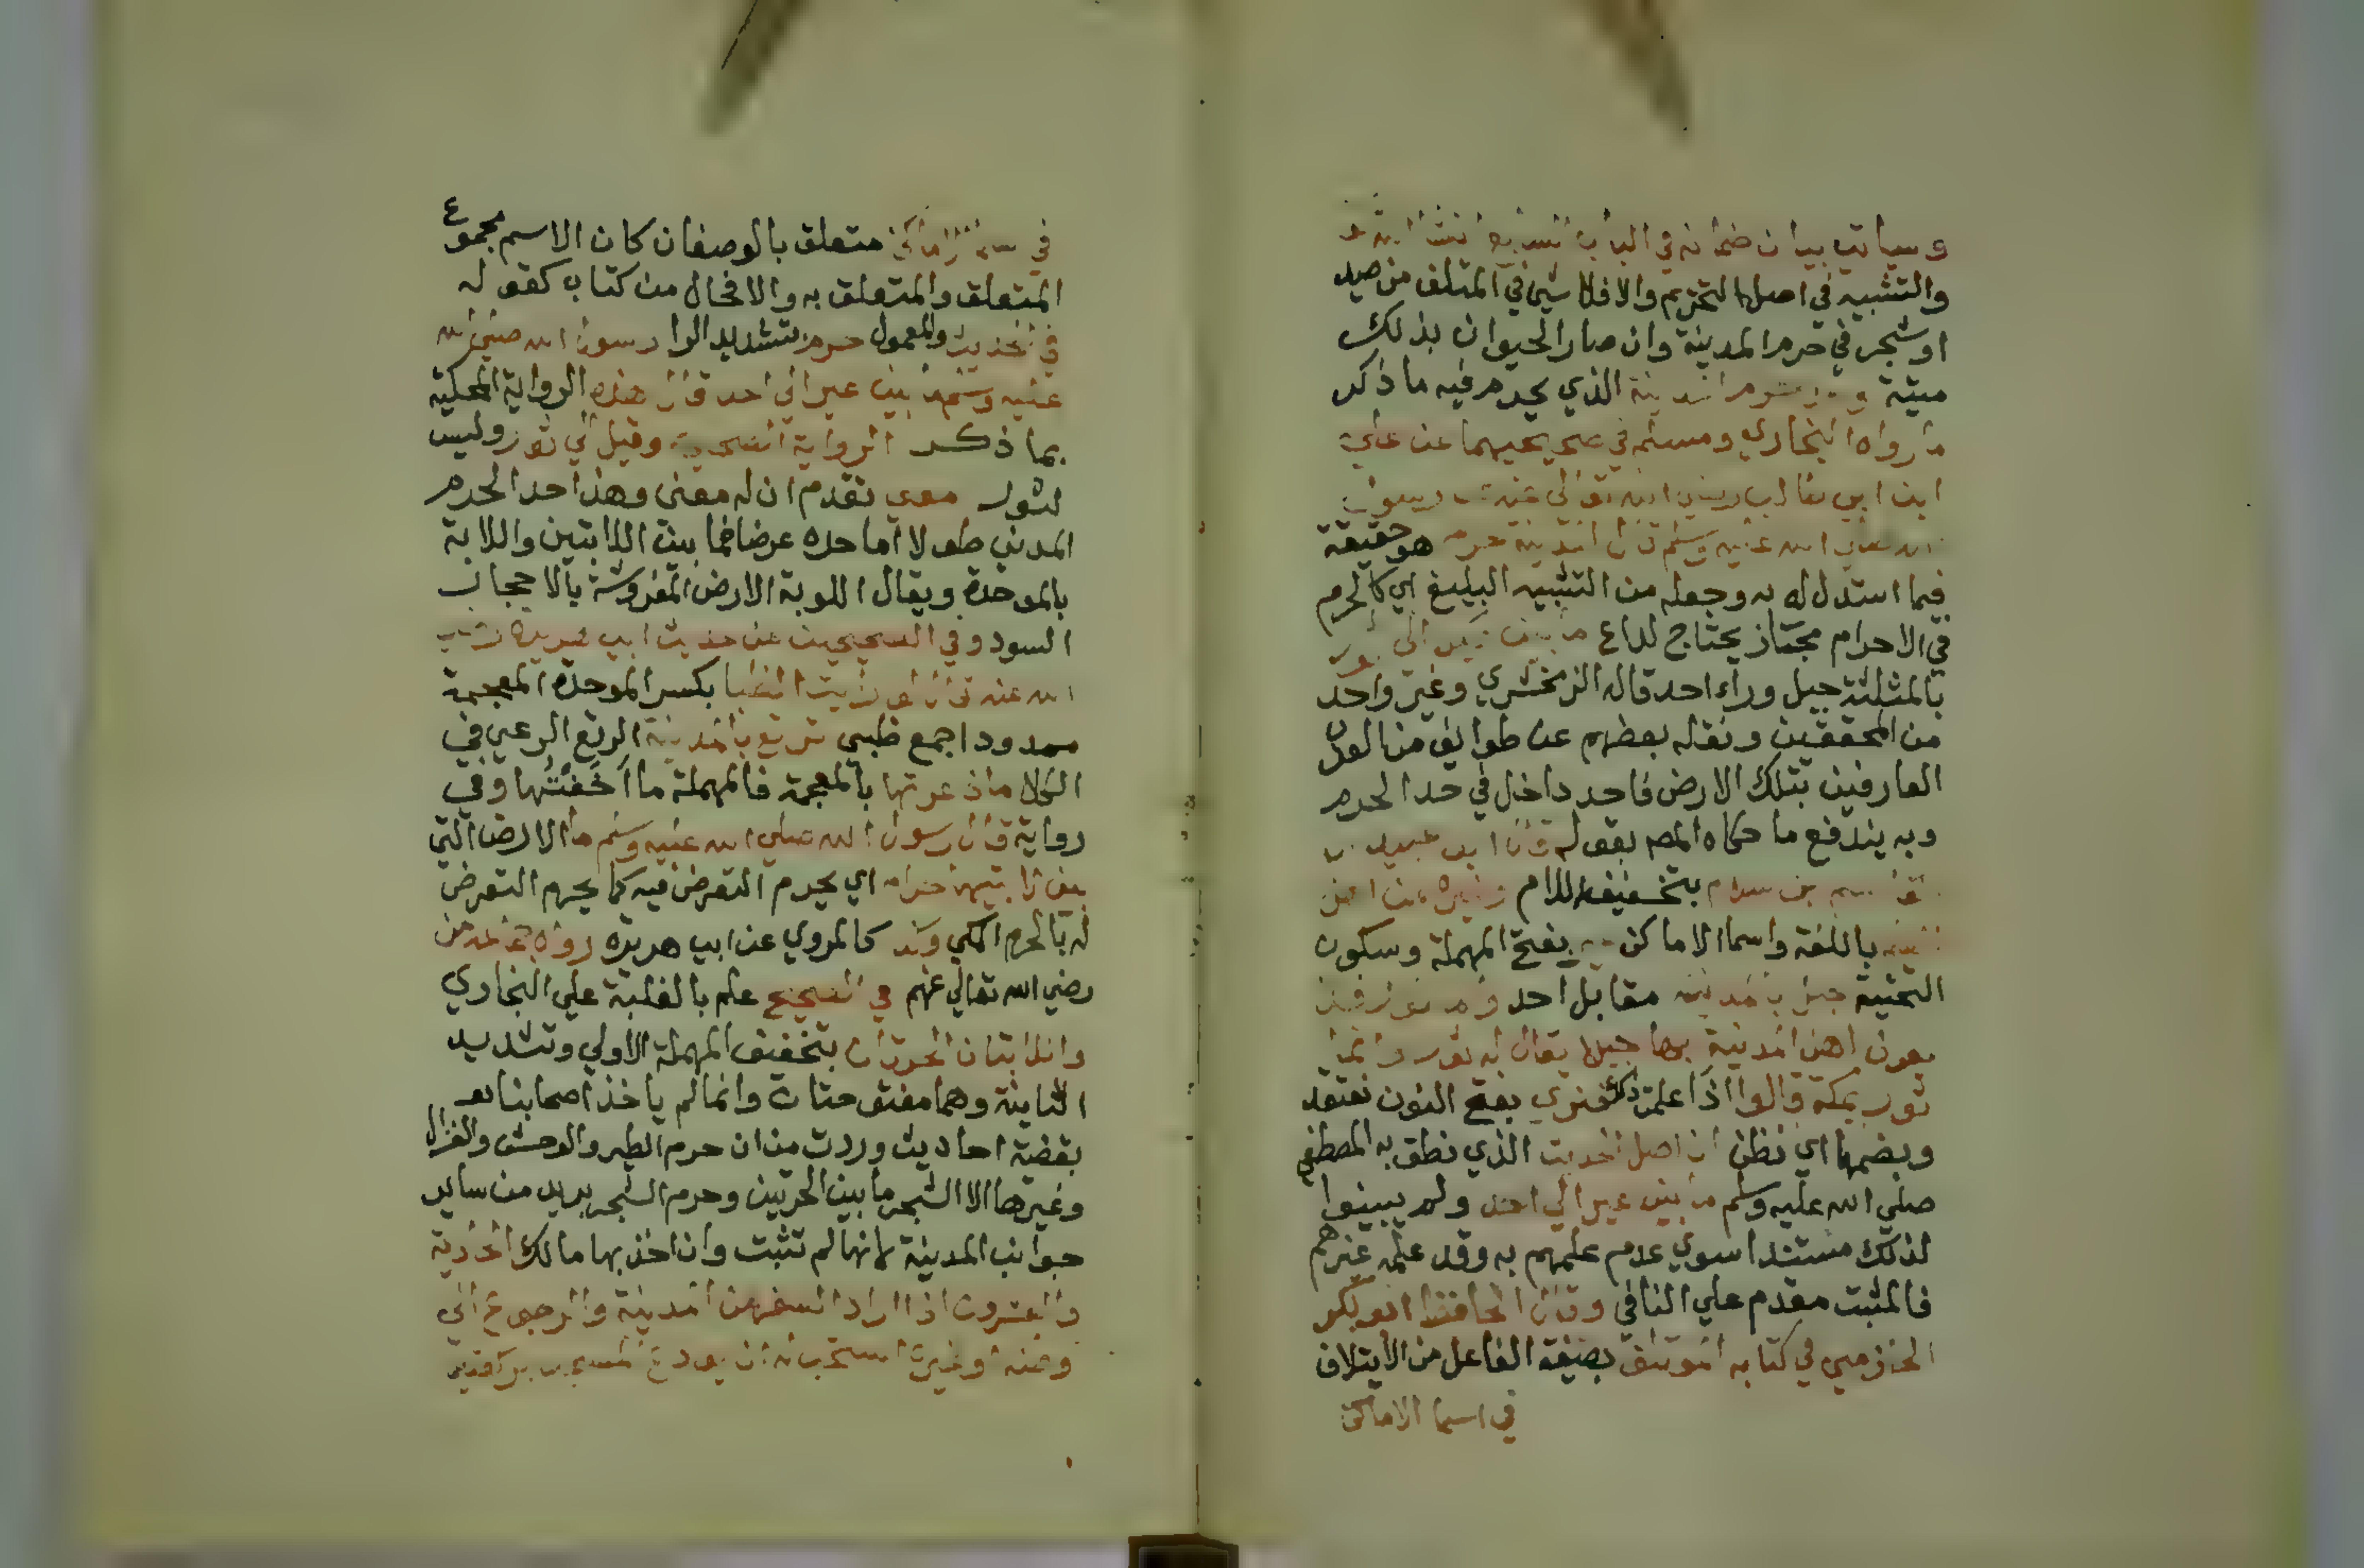 وسياتي بيان ضمانه في الباب السابع ان شا الله
والتشبيه في اصل التحريم والا فلا شي في المتلف من صيد
او شجر في حرم المدينة وان صار الحيوان بذلك
ميتة وحد حرم المدينة الذي يحرم فيه ما ذكر
ما رواه البخاري ومسلم في صحيحيهما عن علي
ابن ابي طالب رضي الله تعالى عنه رسول
الله صلي الله عليه وسلم قال المدينة حرم هو حقيقة
فيما استدل له به وجعله من التشبيه البليغ اي كالحرم
في الاحرام مجتاز يحتاج لداع ما بين عير الى ثور
بالمثلثة جبل وراء احد قاله الزمخشري وغير واحد
من المحققين ونقله بعضهم عن طوايف من العرب
العارفين بتلك الارض فاحد داخل في حد الحرم
وبه يندفع ما حكاه المص بقوله قال ابو عبيد
القاسم بن سلام بتخفيف اللام وغيره من
باللغة واسما الاماكن بفتح المهملة وسكون
التحتية جبل بالمدينة مقابل احد
اهل المدينة بها جبلا يقال له ثور وانما
ثور بمكة قالوا اذا علمت ذلك فنري بفتح النون نعتقد
وبضمها اي نظن ان اصل الحديث الذي نطق به المصطفي
صلي الله عليه وسلم ما بين عير الي احد ولم يبينوا
لذلك مستندا سوي عدم علمهم به وقد علمه غيرهم
فالمثبت مقدم علي النافي وقال الحافظ ابو بكر
الحازمي في كتابه الموتلف بصيغة الفاعل من الايتلاف
في اسما الاماكن
في اسما الاماكن متعلق بالوصفان كان الاسم مجموع
المتعلق والمتعلق به والا فحال من كتاب كقوله
في الحديث والمعمول حرم بتشديد الرا رسول الله صلي الله
عليه وسلم ما بين عير الي احد قال هذه الرواية المحكية
بما ذكر الرواية الصحيحة وقيل الي ثور وليس
لثور معنى تقدم ان له معنى وهذا حد الحرم
المدني طولا اما حده عرضا فما بين اللابتين واللابة
بالموحدة ويقال اللوبة الارض المفروشة بالاحجار
السود وفي الصحيحين من حديث ابي هريرة رضي
الله عنه قال لو رايت الظبا بكسر الموحدة المعجمة
ممدودا جمع ظبي ترتع بالمدينة الرتع الرعي في
الكلا ما ذعرتها بالمعجمة فالمهملة ما اَخَفْتُها وفي
رواية قال رسول الله صلي الله عليه وسلم ما الارض التي
بين لابتيها حرام اي يحرم التعرض فيه كما يحرم التعرض
له بالحرم المكي كالمروي عن ابي هريرة رواه
رضي الله تعالي عنهم في الصحيح علم بالغلبة علي البخاري
واللابتان الحرتان بتخفيف المهملة الاولي وتشديد
الثانية وهما مفتوحتان وانما لم ياخذ اصحابنا
بقضية احاديث وردت من ان حرم الطير والوحش والغزال
وغيرها الا الشجر ما بين الحرتين وحرم الشجر بريد من ساير
جوانب المدينة لانها لم تثبت وان اخذ بها مالك الحادية
والعشرون اذا اراد السفر من المدينة والرجوع الي
وطنه او غيره استحب له ان يودع المسجد بركعتين